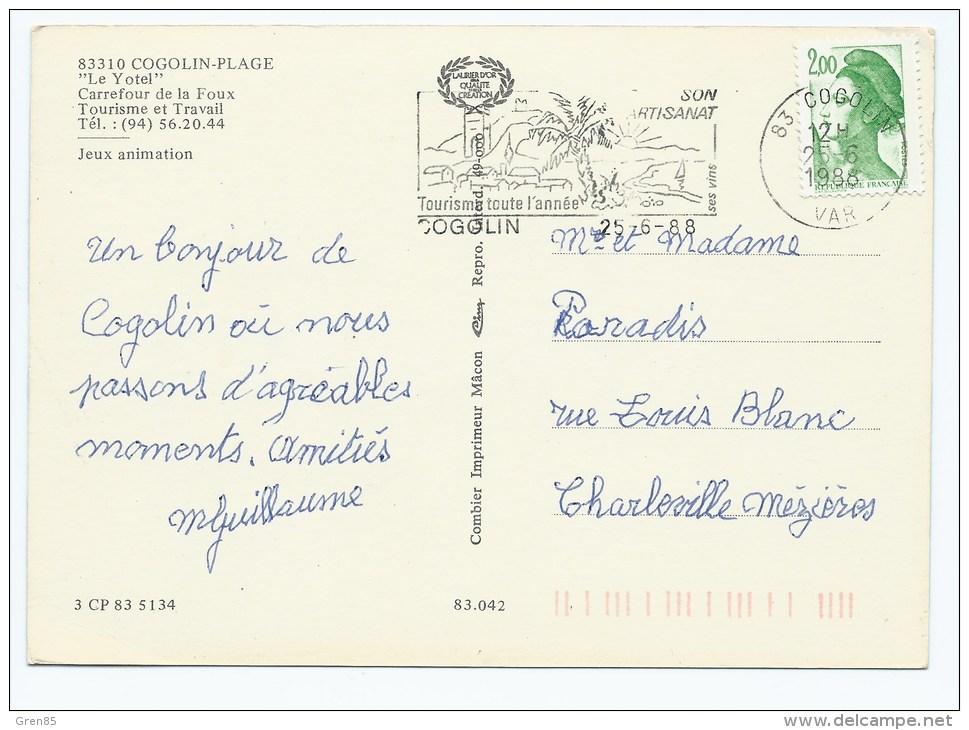 83310 COGOLIN-PLAGE
"Le Yotel"
Carrefour de la Foux
Tourisme et Travail
Tél. : (94) 56.20.44
Jeux animation
LAURIER D'OR
QUALITE
CREATION
SON
ARTISANAT
ses vins
Tourisme toute l'année
COGOLIN 25-6-88
2,00
POSTES
REPUBLIQUE FRANÇAISE
83 COGOLIN
12H
25-6
1988
VAR
Un bonjour de
Cogolin où nous
passons d'agréables
moments. Amitiés
MGuillaume
Combier Imprimeur Mâcon Repro. interd. 49-000
Mr et Madame
Paradis
rue Louis Blanc
Charleville Mézières
3 CP 83 5134
83.042
Gren85
www.delcampe.net